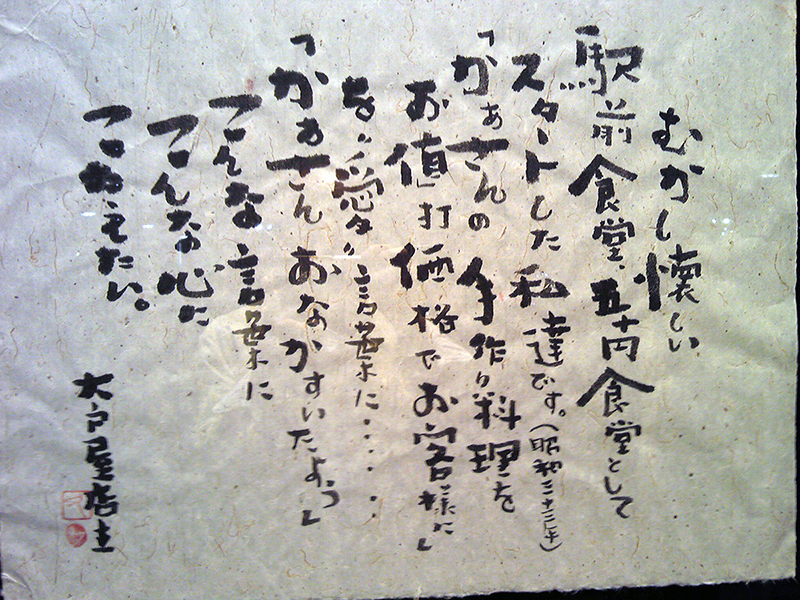 むかし懐しい
駅前食堂、五十円食堂として
スタートした私達です。(昭和三十三年)
「かぁさんの手作り料理を
お値打価格でお客様に」
を〃愛〃言葉に・・・・・
「かぁさんおなかすいたよぅ」
こんな言葉に
こんな心に
こたえたい。
大戸屋店主